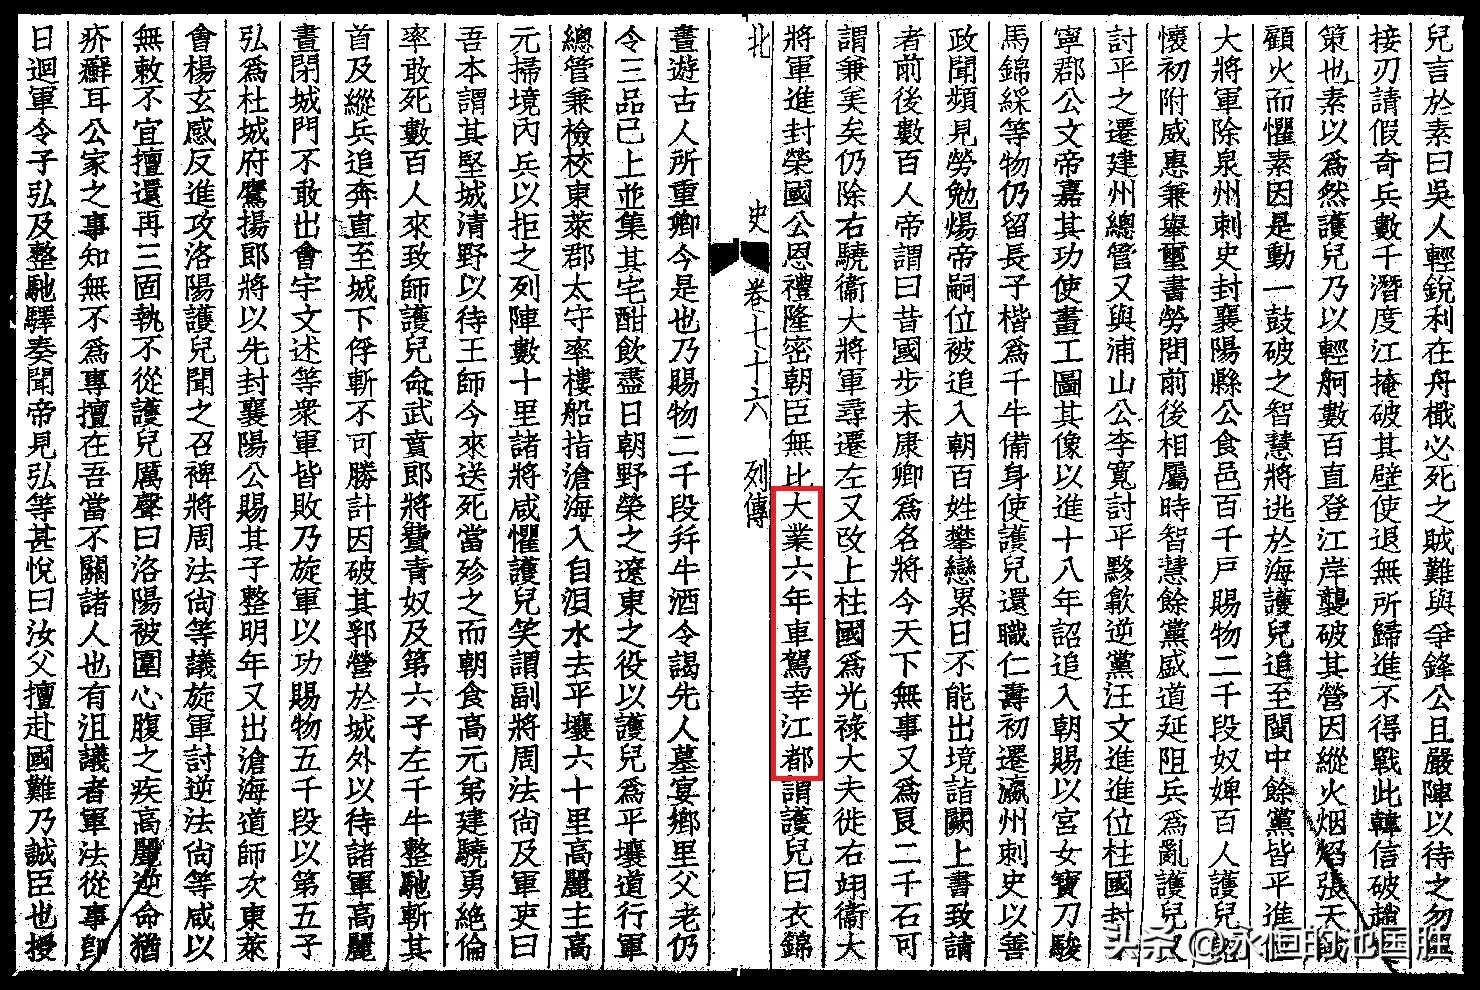 兒言於素曰吳人輕銳利在舟檝必死之賊難與爭鋒公且嚴陣以待之勿
接刃請假奇兵數千潛度江掩破其壁使退無所歸進不得戰此韓信破趙
策也素以爲然護兒乃以輕舸數百直登江岸襲破其營因縱火烟焰張天
顧火而懼素因是動一鼓破之智慧將逃於海護兒追至閩中餘黨皆平進
大將軍除泉州刺史封襄陽縣公食邑一千戶賜物二千段奴婢百人護兒
懷初附威惠兼舉璽書勞問前後相屬時智慧餘黨盛道延阻兵爲亂護兒又
討平之遷建州總管又與浦山公李寬討平黟歙逆黨汪文進進位柱國封
寧郡公文帝嘉其功使畫工圖其像以進十八年詔追入朝賜以宮女寶刀駿
馬錦綵等物仍留長子楷爲千牛備身使護兒還職仁壽初遷瀛州刺史以善
政聞頻見勞勉煬帝嗣位被追入朝百姓攀戀累日不能出境詣闕上書致請
者前後數百人帝謂曰昔國步未康卿爲名將今天下無事又爲良二千石可
謂兼美矣仍除右驍衞大將軍尋遷左又改上柱國爲光祿大夫徙右翊衞大
將軍進封榮國公恩禮隆密朝臣無比大業六年車駕幸江都謂護兒曰衣錦
北史卷七十六 列傳
晝遊古人所重卿今是也乃賜物二千段并牛酒令謁先人墓宴鄉里父老仍
令三品已上並集其宅酣飲盡日朝野榮之遼東之役以護兒爲平壤道行軍
總管兼檢校東萊郡太守率樓船指滄海入自浿水去平壤六十里高麗主高
元掃境內兵以拒之列陣數十里諸將咸懼護兒笑謂副將周法尚及軍吏曰
吾本謂其堅城清野以待王師今來送死當殄之而朝食高元弟建驍勇絕倫
率敢死數百人來致師護兒命武賁郎將費青奴及第六子左千牛整馳斬其
首及縱兵追奔直至城下俘斬不可勝計因破其郛營於城外以待諸軍高麗
晝閉城門不敢出會宇文述等衆軍皆敗乃旋軍以功賜物五千段以第五子
弘爲杜城府鷹揚郎將以先封襄陽公賜其子整明年又出滄海道師次東萊
會楊玄感反進攻洛陽護兒聞之召裨將周法尚等議旋軍討逆法尚等咸以
無敕不宜擅還再三固執不從護兒厲聲曰洛陽被圍心腹之疾高麗逆命猶
疥癬耳公家之事知無不爲專擅在吾當不關諸人也有沮議者軍法從事即
日迴軍令子弘及整馳驛奏聞帝見弘等甚悅曰汝父擅赴國難乃誠臣也授
头条 @永恒的地图胜